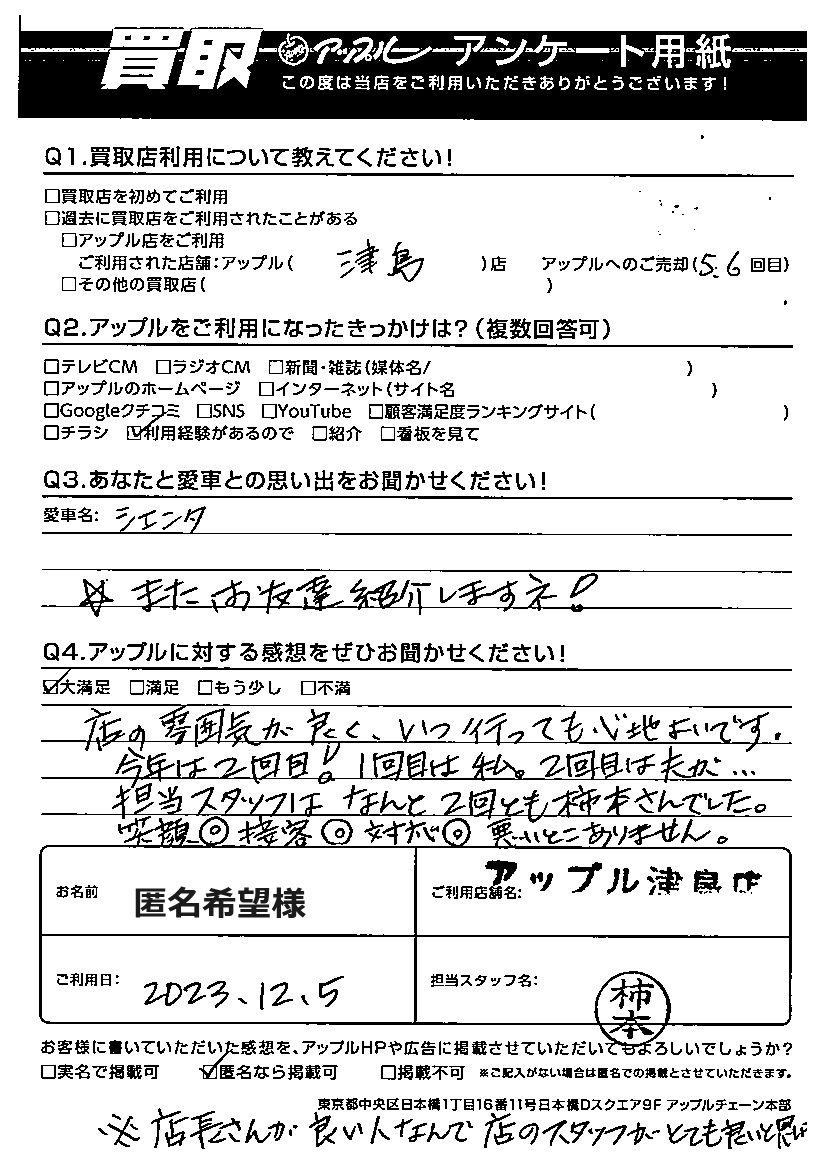 買取 アップル アンケート用紙
この度は当店をご利用いただきありがとうございます!
Q1.買取店利用について教えてください!
□買取店を初めてご利用
□過去に買取店をご利用されたことがある
□アップル店をご利用
ご利用された店舗:アップル( 津島 )店 アップルへのご売却(5.6回目)
□その他の買取店( )
Q2.アップルをご利用になったきっかけは?(複数回答可)
□テレビCM □ラジオCM □新聞・雑誌(媒体名/ )
□アップルのホームページ □インターネット(サイト名 )
□Googleクチコミ □SNS □YouTube □顧客満足度ランキングサイト( )
□チラシ ☑利用経験があるので □紹介 □看板を見て
Q3.あなたと愛車との思い出をお聞かせください!
愛車名: シエンタ
☆ またお友達紹介しますネ!
Q4.アップルに対する感想をぜひお聞かせください!
☑大満足 □満足 □もう少し □不満
店の雰囲気が良く、いつ行っても心地よいです。
今年は2回目! 1回目は私。2回目は夫が…
担当スタッフはなんと2回とも柿本さんでした。
笑顔◎ 接客◎ 対応◎ 悪いとこありません。
お名前 匿名希望様
ご利用店舗名: アップル津島店
ご利用日: 2023.12.5
担当スタッフ名: 柿本
お客様に書いていただいた感想を、アップルHPや広告に掲載させていただいてもよろしいでしょうか?
□実名で掲載可 ☑匿名なら掲載可 □掲載不可 ※ご記入がない場合は匿名での掲載とさせていただきます。
東京都中央区日本橋1丁目16番11号日本橋Dスクエア9F アップルチェーン本部
※ 店長さんが良い人なんで店のスタッフがとても良いと思い